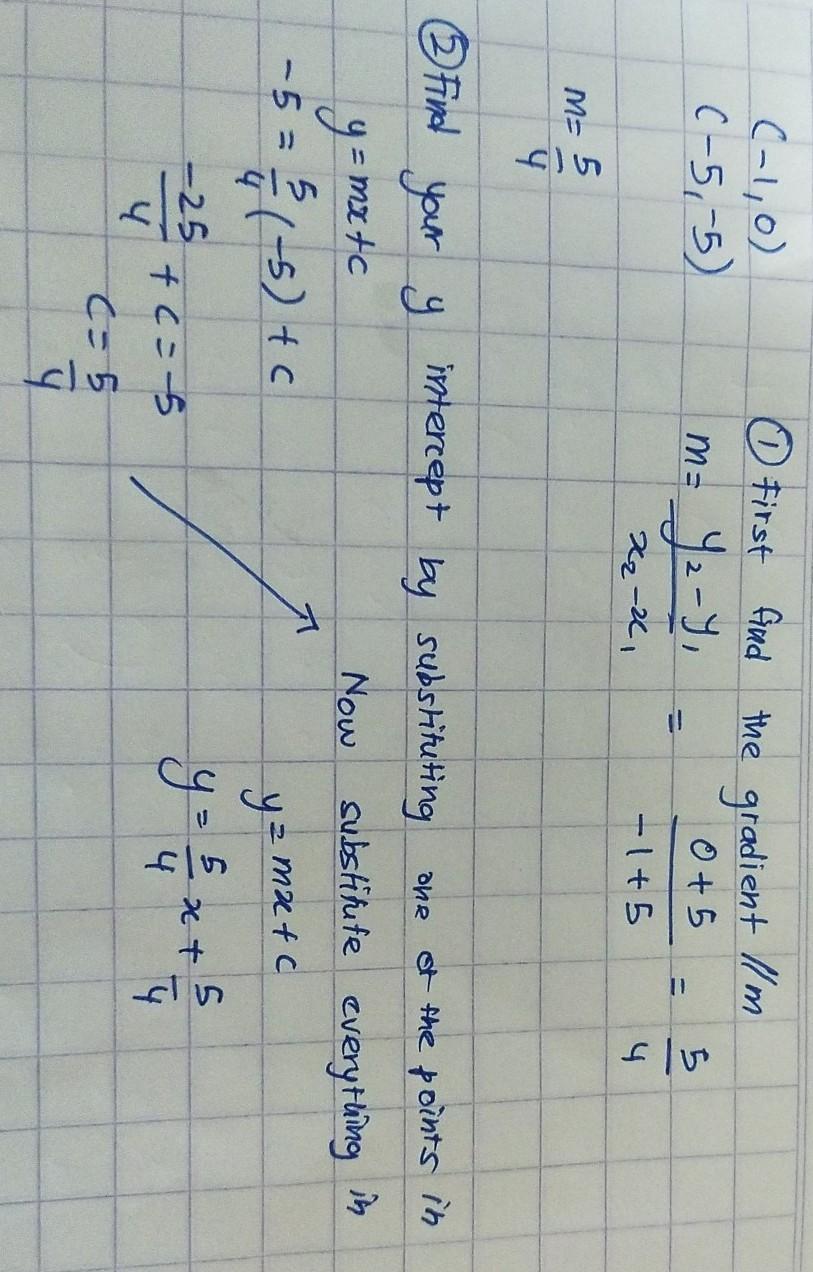 (-1,0)
(-5,-5)
① First find the gradient //m
m= y₂-y₁/x₂-x₁ = 0+5/-1+5 = 5/4
m= 5/4
② Find your y intercept by substituting one of the points in
y=mx+c
-5 = 5/4(-5)+c
-25/4 + c = -5
c = 5/4
Now substitute everything in
y=mx+c
y= 5/4 x + 5/4